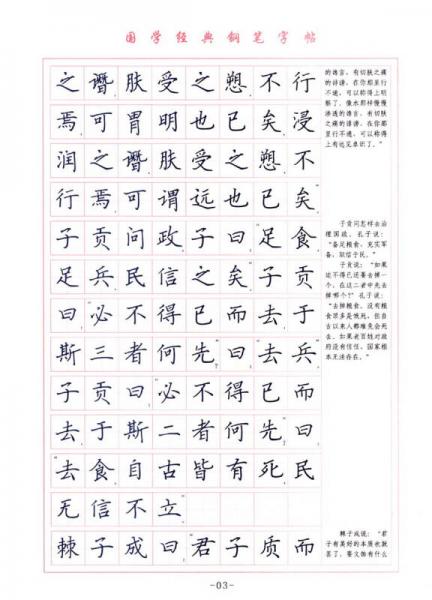 国学经典钢笔字帖
之谮,肤受之愬,不行
焉,可胃明也已矣。浸
润之谮,肤受之愬,不
行焉,可谓远也已矣。”
子贡问政。子曰:“足食,
足兵,民信之矣。”子贡
曰:“必不得已而去,于
斯三者何先?”曰:“去兵。”
子贡曰:“必不得已而
去,于斯二者何先?”曰:
“去食。自古皆有死,民
无信不立。”
棘子成曰:“君子质而
的谗言,有切肤之痛
的诽谤,在你那里行
不通,可以称得上明
察了。像水那样慢慢
渗透的谗言,有切肤
之痛的诽谤,在你那
里行不通,可以称得
上有远见卓识了。”
子贡问怎样去治
理国政。孔子说:
“备足粮食,充实军
备,取信于民。”
子贡说:“如果
迫不得已还要去掉一
个,在这三者中先去
掉哪个?”孔子说:
“去掉粮食。没有粮
食顶多是饿死,但自
古以来人都难免会死
去。如果老百姓对政
府没有信任,国家根
本无法存在。”
棘子成说:“君
子有美好的本质也就
罢了,要文饰有什么
-03-